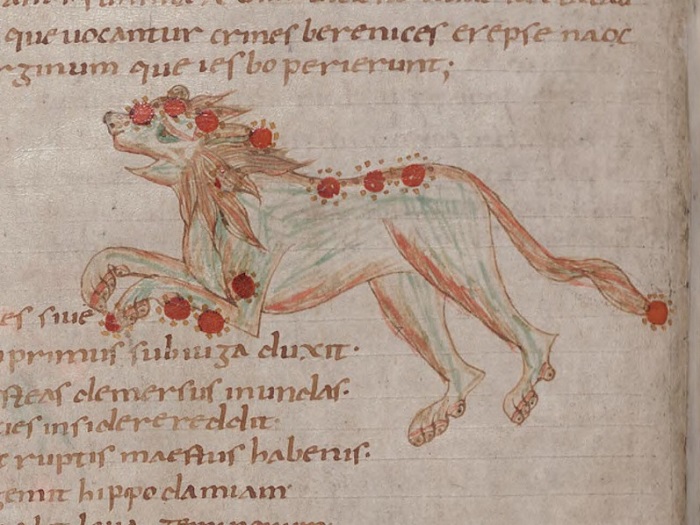 que uocantur crines berenices erepse naoc
rginum que ies bo perierunt;
es siue
primus subiuga duxit.
steas demersus inundas.
ies insidere reddit.
t ruptis maestus habenis.
genuit hippodamiam